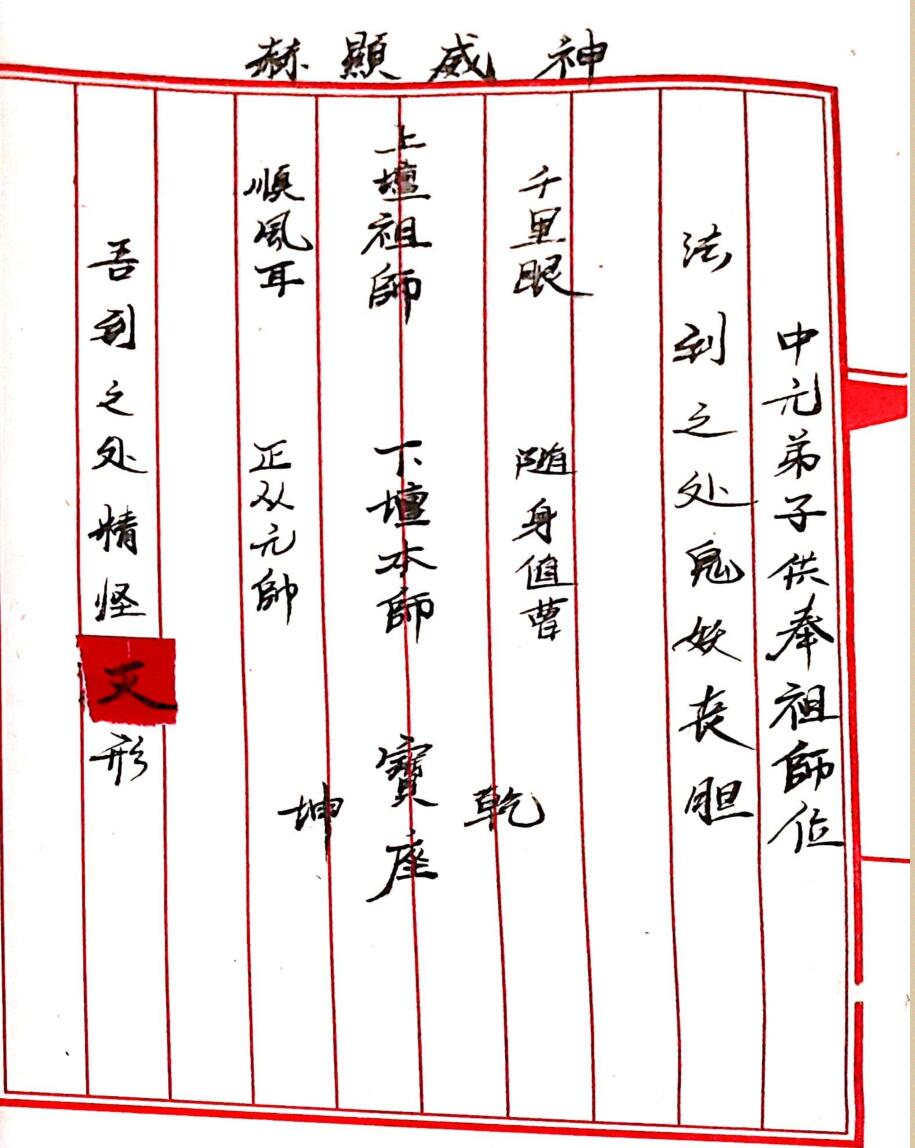 神威顯赫
中元弟子供奉祖師位
法到之处鬼妖丧胆
千里眼 随身值曹
乾
上壇祖師 下壇本師 寶座
順風耳 正从元帥
坤
吾到之处精怪灭形